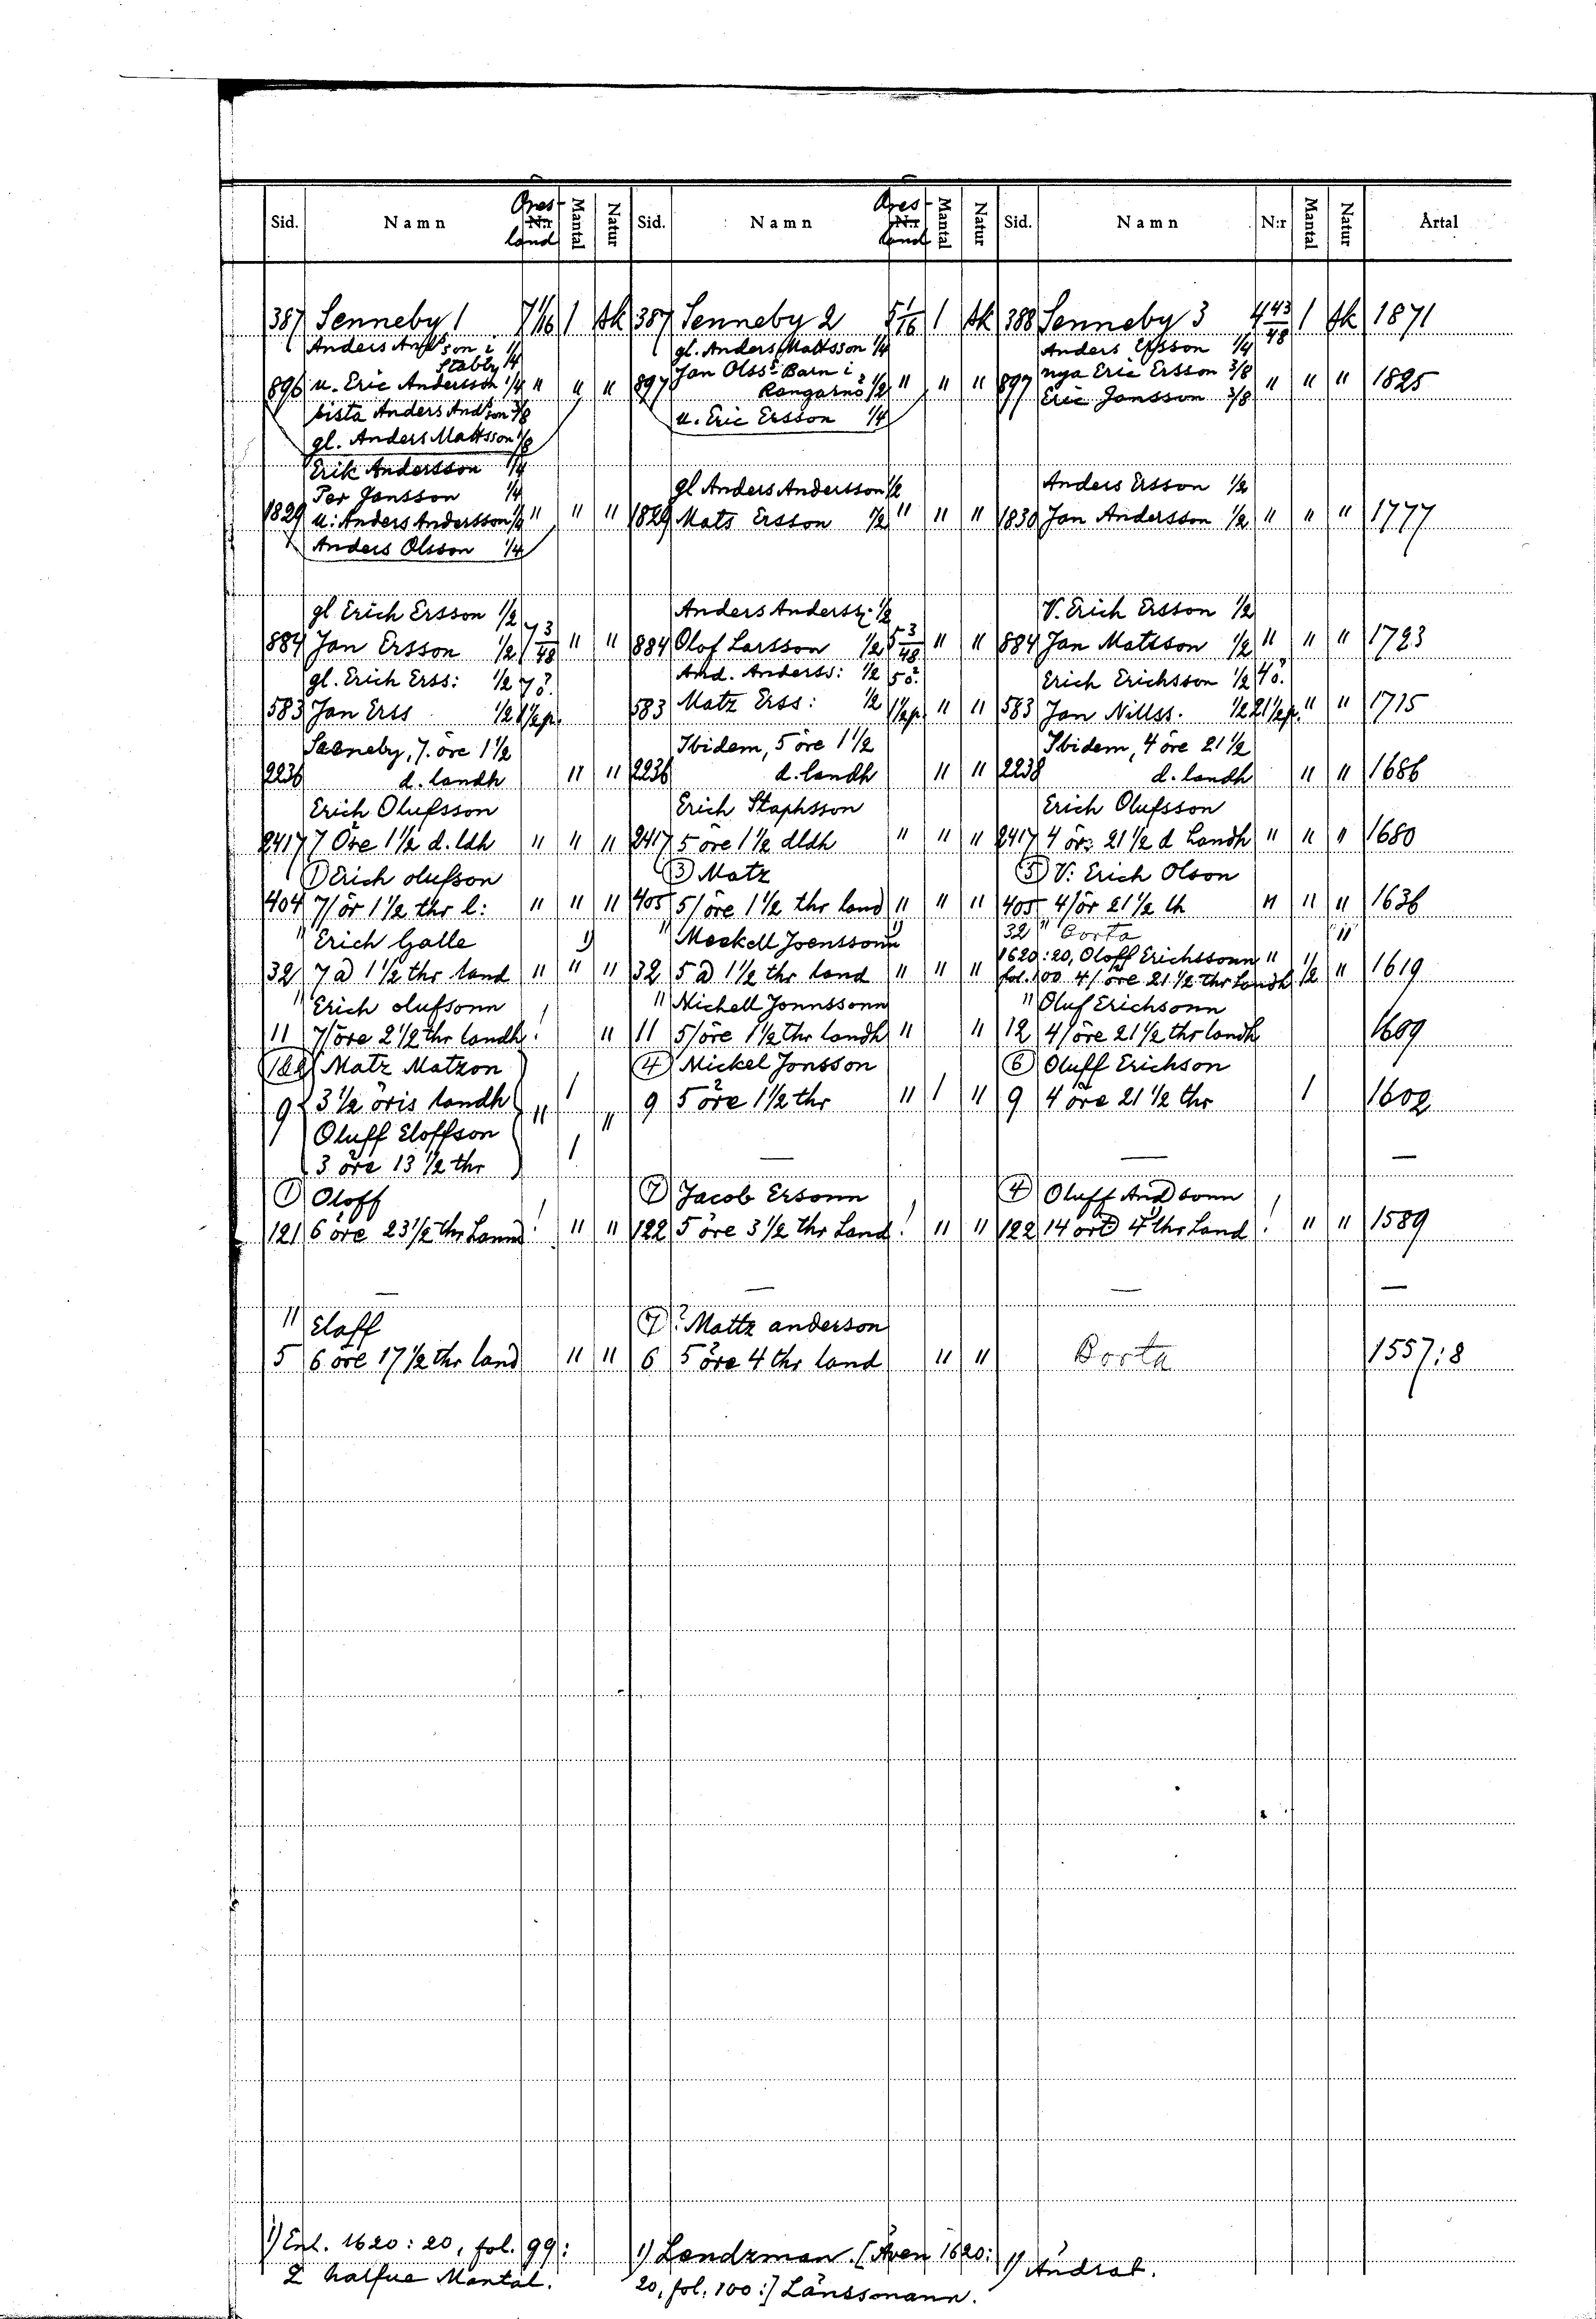 Sid. Namn Öres- N:r land Mantal Natur Sid. Namn Öres- N:r land Mantal Natur Sid. Namn N:r Mantal Natur Årtal
387 Senneby 1 7 1/16 1 sk 387 Senneby 2 5 1/16 1 sk 388 Senneby 3 4 43/48 1 sk 1871
Anders Andsson i gl. Anders Mattsson 1/4 Anders Ersson 1/4
Stabby 1/4 Jan Olss: Barn i nya Eric Ersson 3/8
896 u. Eric Andersson 1/4 " " " 897 Rangarnö 1/2 " " " 897 Eric Jansson 3/8 " " " 1825
sista Anders Andson 3/8 u. Eric Ersson 1/4
gl. Anders Mattsson 1/8
Erik Andersson 1/4
Per Jansson 1/4 gl Anders Andersson 1/2 Anders Ersson 1/2
1829 u: Anders Andersson 1/4 " " " 1829 Mats Ersson 1/2 " " " 1830 Jan Andersson 1/2 " " " 1777
Anders Olsson 1/4
gl Erich Ersson 1/2 Anders Anderss: 1/2 V. Erich Ersson 1/2
884 Jan Ersson 1/2 7 3/48 " " 884 Olof Larsson 1/2 5 3/48 " " 884 Jan Mattson 1/2 " " " 1723
gl. Erich Erss: 1/2 7 ö. And. Anderss: 1/2 5 ö. Erich Erichsson 1/2 4 ö.
583 Jan Erss 1/2 1 1/2 p. 583 Matz Erss: 1/2 1 1/2 p. " " 583 Jan Nillss. 1/2 21 1/2 p. " " 1715
Senneby, 7. öre 1 1/2 Ibidem, 5 öre 1 1/2 Ibidem, 4 öre 21 1/2
2236 d. landh " " 2236 d. landh " " 2238 d. landh " " 1686
Erich Olufsson Erich Staphsson Erich Olufsson
2417 7 Öre 1 1/2 d. ldh " " " 2417 5 öre 1 1/2 dldh " " " 2417 4 ör: 21 1/2 d Landh " " " 1680
1) Erich olufson 3) Matz 5) V: Erich Olson
404 7/ör 1 1/2 thr l: " " " 405 5/öre 1 1/2 thr land " " " 405 4/ör 21 1/2 th " " " 1636
" Erich Galle 1) " Meckell Joenssonn 1) 32 " Borta "
1620:20, Oloff Erichssonn " 1)
32 7 ö 1 1/2 thr land " " " 32 5 ö 1 1/2 thr land " " " fol. 100 4/öre 21 1/2 thr Landh 1/2 " 1619
" Erich olufsonn " Michell Jonnssonn " Oluf Erichsonn
11 7/öre 2 1/2 thr landh ! " 11 5/öre 1 1/2 thr landh " " 12 4/öre 21 1/2 thr landh 1609
1&2) Matz Matzon 4) Mickel Jonsson 6) Oluff Erichson
9 3 1/2 öris landh 1 " " 9 5 öre 1 1/2 thr " 1 " 9 4 öre 21 1/2 thr 1 1602
Oluff Eloffson 1
3 öre 13 1/2 thr — — —
1) Oloff 7) Jacob Ersonn 4) Oluff Andsonn
121 6 öre 23 1/2 thr Lannd ! " " 122 5 öre 3 1/2 thr Land ! " " 122 14 örto 4 thr Land ! " " 1589
— — — —
" Eloff 7)? Mattz anderson
5 6 öre 17 1/2 thr land " " 6 5 öre 4 thr land " " Borta 1557:8
1) Enl. 1620:20, fol. 99:
2 halfue Mantal.
1) Lendzman. [Även 1620:
20, fol. 100:] Länssmann.
1) Ändrat.